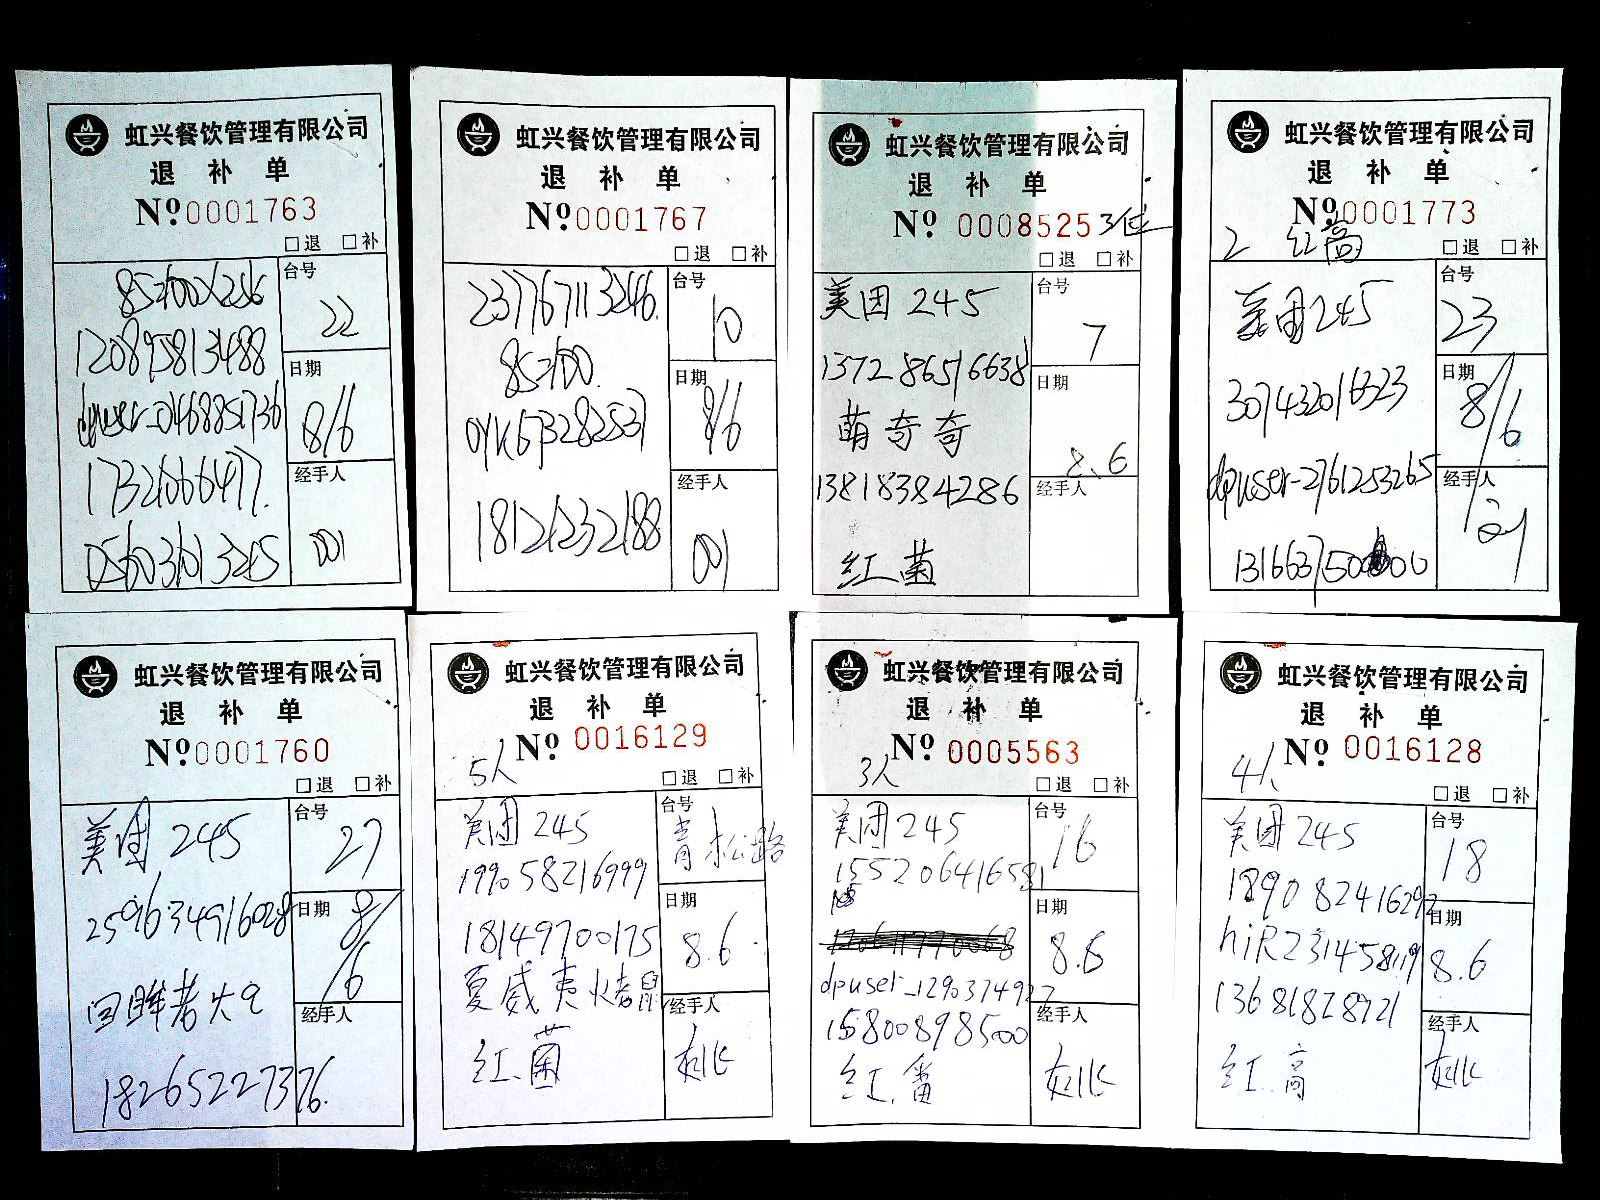 虹兴餐饮管理有限公司
退 补 单
Nº0001763
□退 □补
台号
22
120895813488
日期
8/6
17321066477.
经手人
001
虹兴餐饮管理有限公司
退 补 单
Nº0001767
□退 □补
237767113246.
台号
10
85=100.
日期
8/6
18121232188
经手人
001
虹兴餐饮管理有限公司
退 补 单
Nº 0008525 3位
□退 □补
美团 245
台号
7
1372865166638
日期
萌奇奇
8.6
13818384286
经手人
红菌
虹兴餐饮管理有限公司
退 补 单
Nº0001773
2 红高
□退 □补
美团245
台号
23
307432016323
日期
8/6
dpuser-2761253265
经手人
虹兴餐饮管理有限公司
退 补 单
Nº0001760
□退 □补
美团 245
台号
27
259634916028
日期
8/6
回眸者
经手人
18265227376.
虹兴餐饮管理有限公司
退 补 单
Nº 0016129
5人
□退 □补
美团 245
台号
青松路
199058216999
日期
18149700175
8.6
夏威夷火烤鼠
经手人
红菌
虹兴餐饮管理有限公司
退 补 单
Nº 0005563
3人
□退 □补
美团 245
台号
16
155206416581
日期
8.6
dpuser_1290374927
15800898500
经手人
红番
虹兴餐饮管理有限公司
退 补 单
Nº 0016128
4人
□退 □补
美团 245
台号
18
189082416292
日期
8.6
13681828921
经手人
红高